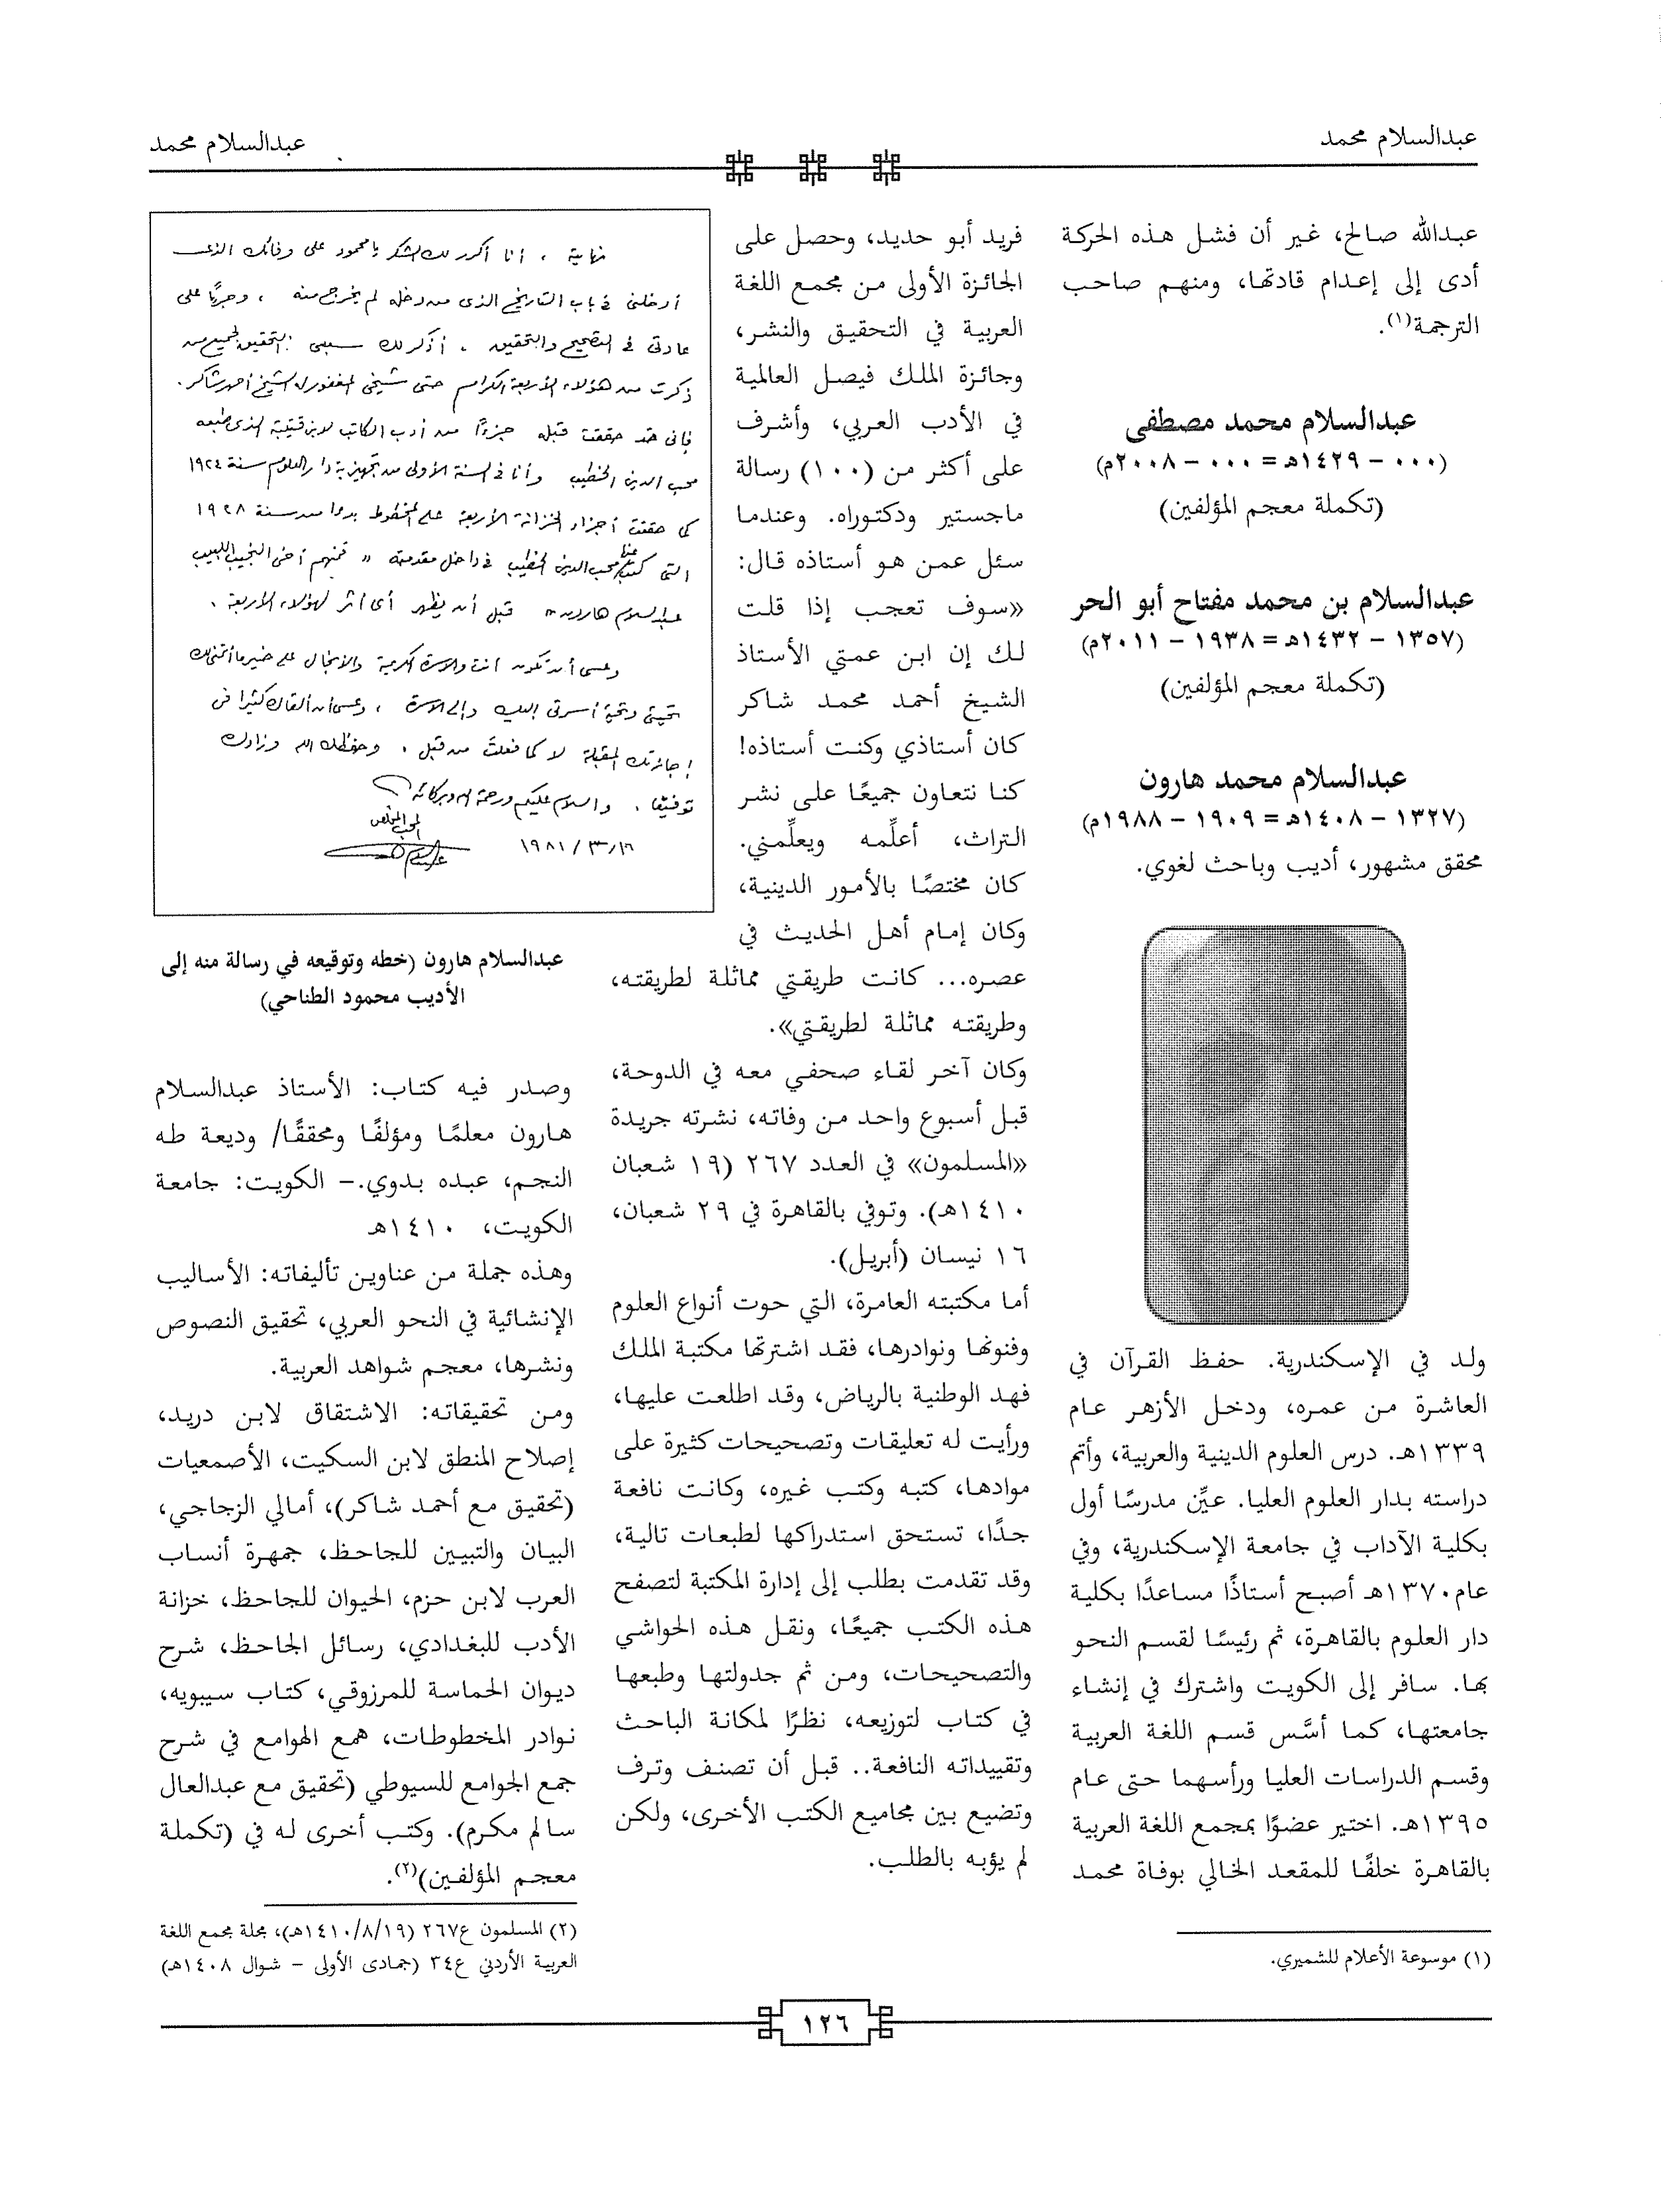 عبدالسلام محمد
عبدالسلام محمد
عبدالله صالح، غير أن فشل هذه الحركة
أدى إلى إعدام قادتها، ومنهم صاحب
الترجمة(١).
عبدالسلام محمد مصطفى
(٠٠٠ – ١٤٢٩هـ = ٠٠٠ – ٢٠٠٨م)
(تكملة معجم المؤلفين)
عبدالسلام بن محمد مفتاح أبو الحر
(١٣٥٧ – ١٤٣٢هـ = ١٩٣٨ – ٢٠١١م)
(تكملة معجم المؤلفين)
عبدالسلام محمد هارون
(١٣٢٧ – ١٤٠٨هـ = ١٩٠٩ – ١٩٨٨م)
محقق مشهور، أديب وباحث لغوي.
ولد في الإسكندرية. حفظ القرآن في
العاشرة من عمره، ودخل الأزهر عام
١٣٣٩هـ. درس العلوم الدينية والعربية، وأتم
دراسته بدار العلوم العليا. عيِّن مدرسًا أول
بكلية الآداب في جامعة الإسكندرية، وفي
عام ١٣٧٠هـ أصبح أستاذًا مساعدًا بكلية
دار العلوم بالقاهرة، ثم رئيسًا لقسم النحو
بها. سافر إلى الكويت واشترك في إنشاء
جامعتها، كما أسَّس قسم اللغة العربية
وقسم الدراسات العليا ورأسهما حتى عام
١٣٩٥هـ. اختير عضوًا بمجمع اللغة العربية
بالقاهرة خلفًا للمقعد الخالي بوفاة محمد
(١) موسوعة الأعلام للشميري.
فريد أبو حديد، وحصل على
الجائزة الأولى من مجمع اللغة
العربية في التحقيق والنشر،
وجائزة الملك فيصل العالمية
في الأدب العربي، وأشرف
على أكثر من (١٠٠) رسالة
ماجستير ودكتوراه. وعندما
سئل عمن هو أستاذه قال:
«سوف تعجب إذا قلت
لك إن ابن عمتي الأستاذ
الشيخ أحمد محمد شاكر
كان أستاذي وكنت أستاذه!
كنا نتعاون جميعًا على نشر
التراث، أعلِّمه ويعلِّمني.
كان مختصًا بالأمور الدينية،
وكان إمام أهل الحديث في
عصره... كانت طريقتي مماثلة لطريقته،
وطريقته مماثلة لطريقتي».
وكان آخر لقاء صحفي معه في الدوحة،
قبل أسبوع واحد من وفاته، نشرته جريدة
«المسلمون» في العدد ٢٦٧ (١٩ شعبان
١٤١٠هـ). وتوفي بالقاهرة في ٢٩ شعبان،
١٦ نيسان (أبريل).
أما مكتبته العامرة، التي حوت أنواع العلوم
وفنونها ونوادرها، فقد اشترتها مكتبة الملك
فهد الوطنية بالرياض، وقد اطلعت عليها،
ورأيت له تعليقات وتصحيحات كثيرة على
موادها، كتبه وكتب غيره، وكانت نافعة
جدًا، تستحق استدراكها لطبعات تالية،
وقد تقدمت بطلب إلى إدارة المكتبة لتصفح
هذه الكتب جميعًا، ونقل هذه الحواشي
والتصحيحات، ومن ثم جدولتها وطبعها
في كتاب لتوزيعه، نظرًا لمكانة الباحث
وتقييداته النافعة.. قبل أن تصنف وترف
وتضيع بين مجاميع الكتب الأخرى، ولكن
لم يؤبه بالطلب.
، أنا أكرر لك الشكر يا محمود على وفائك الذى
أدخلنى فى باب التاريخ الذى من دخله لم يخرج منه ، وجريًا على
عادتى فى التصحيح والتحقيق ، أذكر لك سبقى التحقيق لجميع من
ذكرت من هؤلاء الأربعة الكرام حتى شيخى المغفور له الشيخ أحمد شاكر.
فإنى قد حققت قبله جزءًا من أدب الكاتب لابن قتيبة الذى طبعه
محب الدين الخطيب وأنا فى السنة الأولى من تجهيزية دار العلوم سنة ١٩٢٤
كما حققت أجزاء الخزانة الأربعة على المخطوط بدءا من سنة ١٩٢٨
التى كتب عنها محب الدين الخطيب فى داخل مقدمته « فمنهم أخى النجيب اللبيب
عبدالسلام هارون » قبل أن يظهر أى أثر لهؤلاء الأربعة .
وعسى أن تكون أنت والأسرة الكريمة والأنجال على خير ما أتمنى لك
تحيتى وتحية أسرتى إليك وإلى الأسرة ، وعسى أن ألقاك كثيرا فى
إجازتك المقبلة لا كما فعلت من قبل . وحفظك الله وزادك
توفيقا . والسلام عليكم ورحمة الله وبركاته
المحب المخلص
عبدالسلام هارون
١٩٨١/٣/١٦
عبدالسلام هارون (خطه وتوقيعه في رسالة منه إلى
الأديب محمود الطناحي)
وصدر فيه كتاب: الأستاذ عبدالسلام
هارون معلمًا ومؤلفًا ومحققًا/ وديعة طه
النجم، عبده بدوي.– الكويت: جامعة
الكويت، ١٤١٠هـ
وهذه جملة من عناوين تأليفاته: الأساليب
الإنشائية في النحو العربي، تحقيق النصوص
ونشرها، معجم شواهد العربية.
ومن تحقيقاته: الاشتقاق لابن دريد،
إصلاح المنطق لابن السكيت، الأصمعيات
(تحقيق مع أحمد شاكر)، أمالي الزجاجي،
البيان والتبيين للجاحظ، جمهرة أنساب
العرب لابن حزم، الحيوان للجاحظ، خزانة
الأدب للبغدادي، رسائل الجاحظ، شرح
ديوان الحماسة للمرزوقي، كتاب سيبويه،
نوادر المخطوطات، همع الهوامع في شرح
جمع الجوامع للسيوطي (تحقيق مع عبدالعال
سالم مكرم). وكتب أخرى له في (تكملة
معجم المؤلفين)(٢).
(٢) المسلمون ع٢٦٧ (١٤١٠/٨/١٩هـ)، مجلة مجمع اللغة
العربية الأردني ع٣٤ (جمادى الأولى – شوال ١٤٠٨هـ)
١٢٦